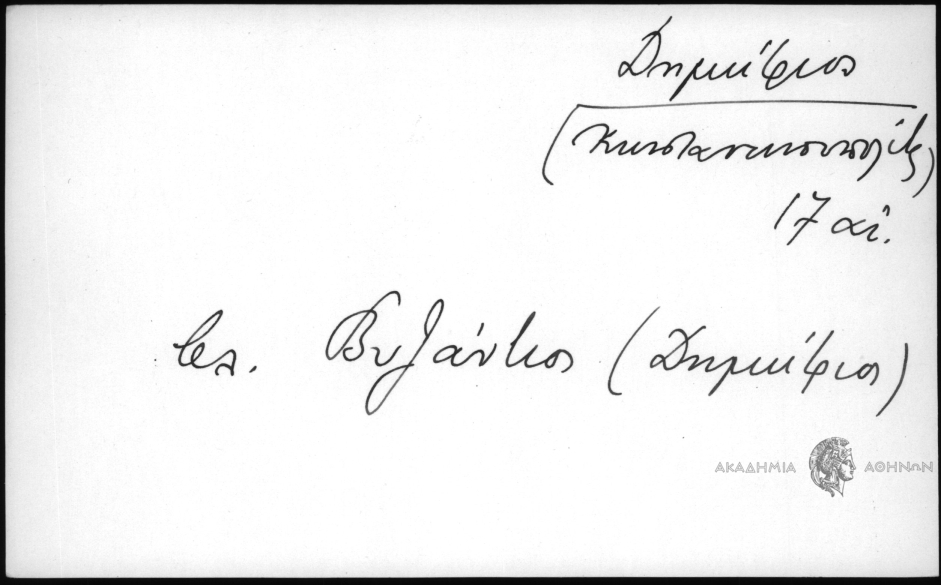 Δημήτριος
(Κωνσταντινουπολίτης)
17 αἰ.
βλ. Βυζάντιος (Δημήτριος)
ΑΚΑΔΗΜΙΑ ΑΘΗΝΩΝ